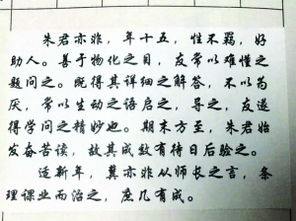 朱君亦非，年十五，性不羁，好
助人。善于物化之目，友常以难懂之
题问之。既得其详细之解答，不以为
厌，常以生动之语启之，导之，友遂
得学问之精妙也。期末方至，朱君始
发奋苦读，故其成效有待日后验之。
适新年，冀亦非从师长之言，条
理课业而治之，庶几有成。